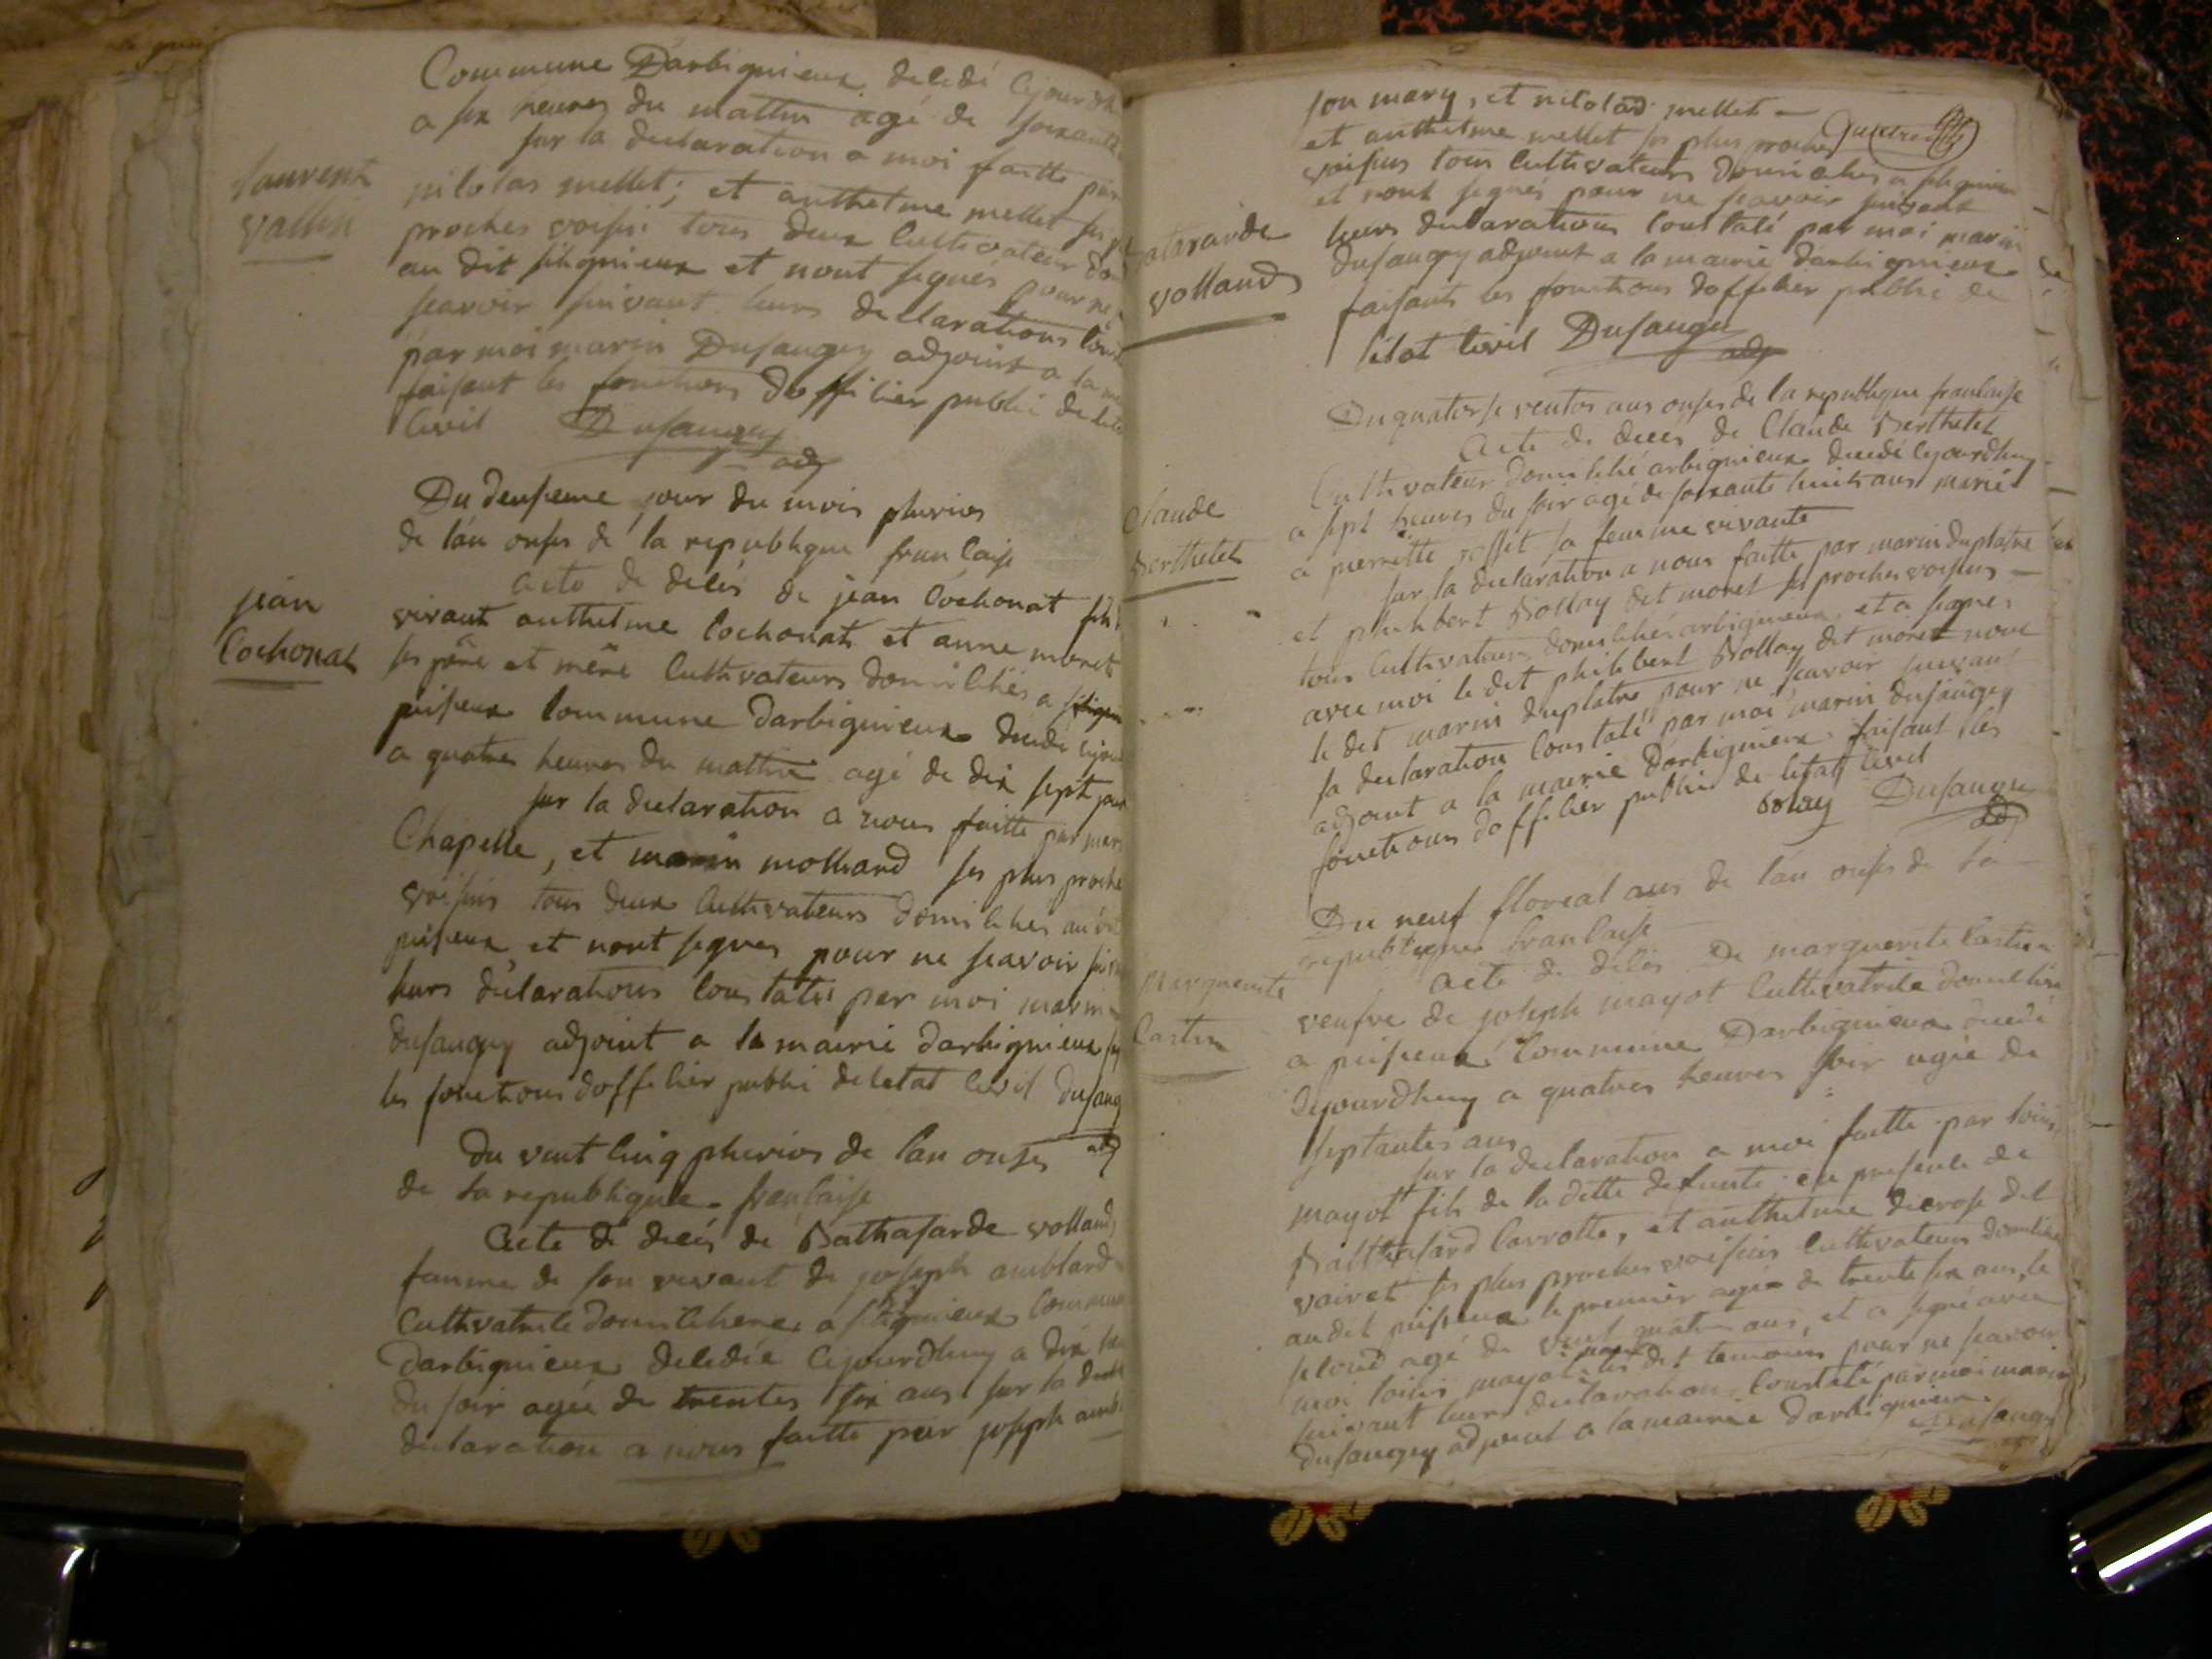 Commune Darbignieux deledé Cejourdh
a six heures du mattin agé de soixante
sur la declaration a moi faitte par
laurent
vallin
nilolas mellet; et anthelme mellet ses p
proches voisin tous deux Cultivateur do
au dit silignieux et nont signés pour ne
scavoir suivant leurs declarations Cons
par moi marin Dusaugey adjoint a la m
faisant les fonctions doffilier publi de leta
Civil Dusaugey
adj
Du deusieme jour du mois pluvios
de lan onses de la republique franlaise
acte de delés de jean Cochonat fils
jean
Cochonat
vivant anthelme Cochonat et anne moret
ses père et mère Cultivateurs domililiés a
puiseux Commune darbignieux dcedé cejour
a quatres heures du mattin agé de dix sept jour
sur la declaration a nous faitte par mar
Chapelle, et marin mollard ses plus proche
voisins tous deux Cultivateurs domililiés au dit
puiseux et nont signés pour ne scavoir sui
leurs déclarations Constatés par moi marin
dusaugey adjoint a la mairie darbignieux
les fonctions doffilier publi de letat Civil dusaug
adj
du vent Cinq pluvios de lan onses
de la republique franlaise
Acte de decés de Bathasarde volland
famme de son vivant de joseph amblard
Cultivatrile domililiere a silignieux Commun
Darbignieux deledée Cejourdhuy a dix heu
du soir agée de trentes six ans sur la decla
declaration a nous faitte par joseph amb
son mary, et nilolas mellet
et anthelme mellet ses plus proches
voisins tous Cultivateurs domililies a silignieux
et nont signés pour ne scavoir suivant
batazarde
volland
leurs declarations Constaté par moi marin
dusaugey adjoint a la mairie darbignieux
faisants les fonctions doffilier publi de
létat Civil Dusaugey
adj
Du quatorse ventos ans onses de la republique franlaise
Acte de deces de Claude Berthelet
Claude
Berthelet
Cultivateur domililié arbignieux decedé Cejourdhuy
a sept heures du soir agé de soixante huit ans marié
a pierrette rosset sa femme vivante
sur la declaration a nous faitte par marin duplatre
et philibert Bollay dit moret ses proches voisins
tous Cultivateurs domililiés arbignieux et a signés
avec moi le dit philibert Bollay dit moret nont
le dit marin duplatre pour ne scavoir suivant
sa declaration Constaté par moi marin dusaugey
adjoint a la mairie darbignieux faisant les
fonctions doffilier publi de letat Civil
bolay Dusaugey
adj
Du neuf floreal ans de lan onses de la
republique franlaise
acte de delés de marguerite Castin
Marguerite
Castin
veufve de joseph mayot Cultivatrile domililiée
a puiseux Commune Darbignieux decedé
Cejourdhuy a quatres heures soir agée de
septantes ans
sur la declaration a moi faitte par loüis
mayot fils de la ditte defunte en presenle de
Balthasard Carrotte, et anthelme decrose dit
vairet ses plus proches voisins Cultivateurs domililié
au dit puiseux le premier agée de trente six ans, le
selond agé de vent quatre ans, et a signé avec
moi loüis mayot nont les dit temoins pour ne scavoir
suivant leurs declaration Constaté par moi marin
dusaugey adjoint a la mairie darbignieux
Dusaugey